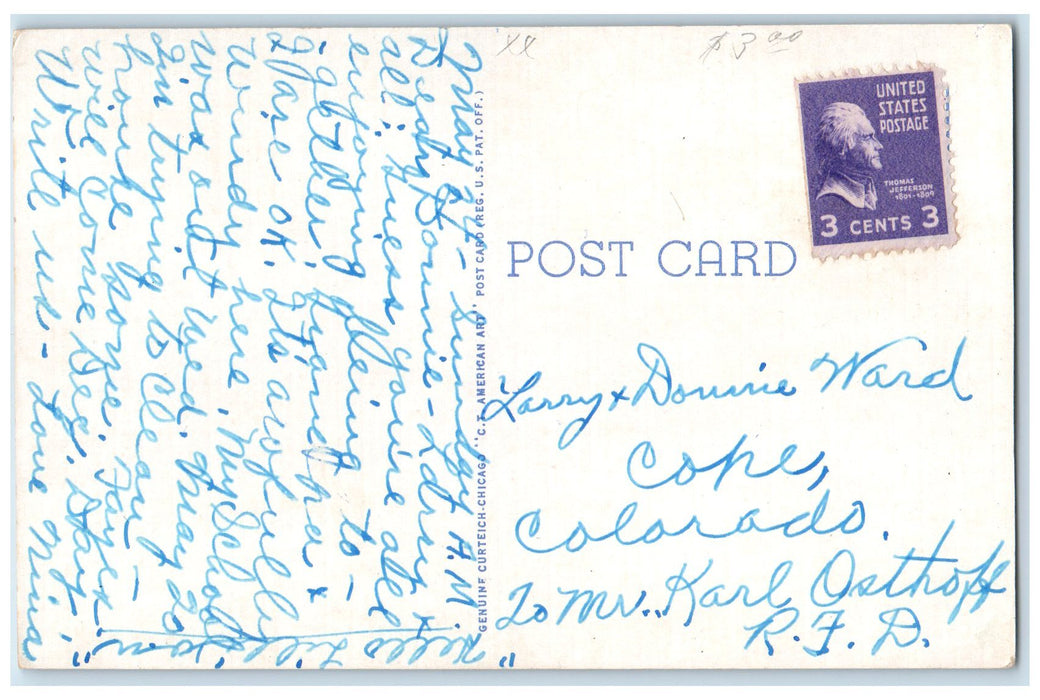 XX
$3.00
UNITED
STATES
POSTAGE
THOMAS
JEFFERSON
1801-1809
3 CENTS 3
POST CARD
GENUINE CURTEICH-CHICAGO "C.T. AMERICAN ART" POST CARD (REG. U.S. PAT. OFF.)
Larry & Donnie Ward
Cope,
Colorado.
To Mr. Karl Osthoff
R.F.D.
May 24 - Sunday A.M.
Dear Donnie - Larry &
all: Guess you're all
enjoying being to-
gether; Grandpa &
I are OK. It's awfully
windy here. My School
was out Wed. May 20
I'm trying to clean-
house some.
will come Dec.
Write us - Love Nina
"Hello